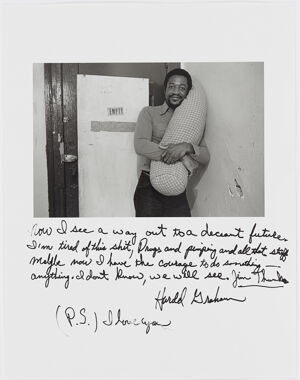 EMPTY
Now I see a way out to a deceant future.
I'm tired of this shit, Drugs and pimping and all that stuff
Maybe now I have the courage to do something
anything. I dont know, we will see. Jim Thanks
Harold Graham
(P.S.) I love you